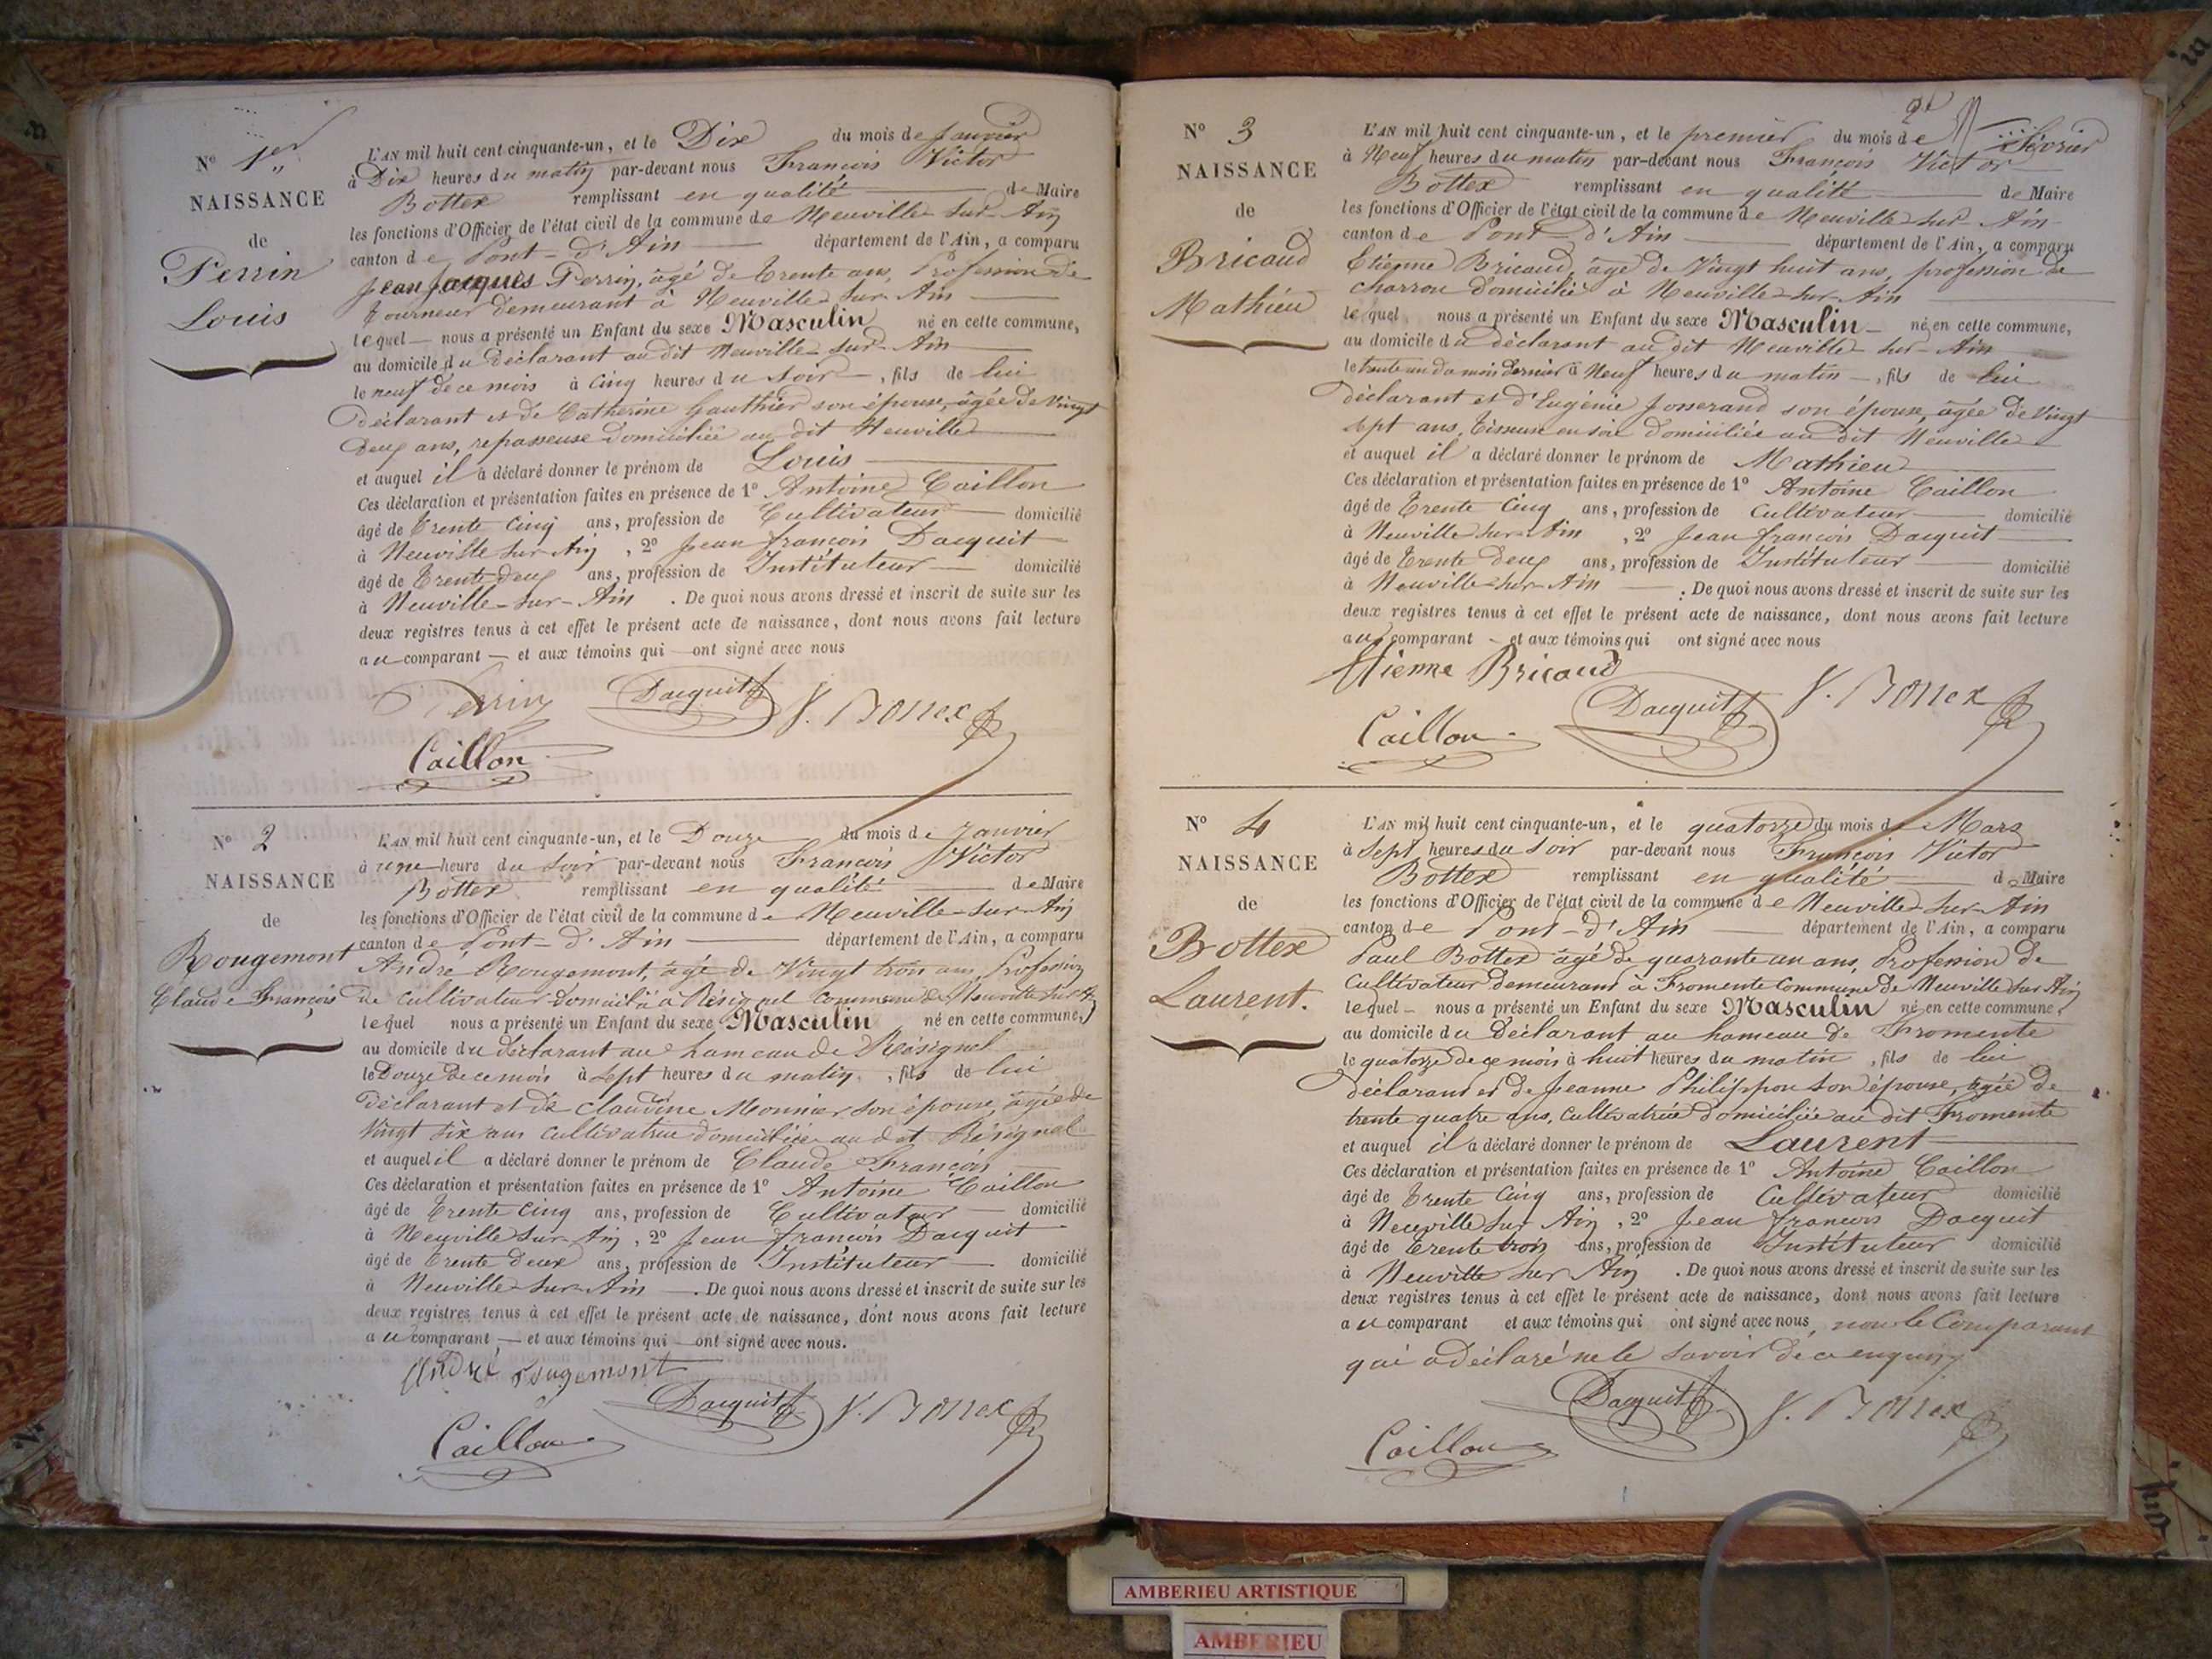 N° 1er
NAISSANCE
de
Perrin
Louis
L'AN mil huit cent cinquante-un, et le Dix du mois de Janvier
à Dix heures du matin par-devant nous François Victor
Bottex remplissant en qualité de Maire
les fonctions d'Officier de l'état civil de la commune de Neuville-sur-Ain
canton de Pont-d'Ain département de l'Ain, a comparu
Jean Jacques Perrin, âgé de trente ans, Profession de
Tourneur demeurant à Neuville-sur-Ain
lequel nous a présenté un Enfant du sexe Masculin né en cette commune,
au domicile du déclarant au dit Neuville-sur-Ain
le neuf de ce mois à cinq heures du soir, fils de lui
Déclarant et de Catherine Gauthier son épouse, âgée de vingt
deux ans, repasseuse domiciliée au dit Neuville
et auquel il a déclaré donner le prénom de Louis
Ces déclaration et présentation faites en présence de 1° Antoine Caillon
âgé de trente cinq ans, profession de Cultivateur domicilié
à Neuville sur Ain, 2° Jean françois Dacquit
âgé de trente deux ans, profession de Instituteur domicilié
à Neuville-sur-Ain. De quoi nous avons dressé et inscrit de suite sur les
deux registres tenus à cet effet le présent acte de naissance, dont nous avons fait lecture
au comparant et aux témoins qui ont signé avec nous
Perrin Dacquit V. Bottex
Caillon
N° 2
NAISSANCE
de
Rougemont
Claude François
L'AN mil huit cent cinquante-un, et le Douze du mois de Janvier
à une heure du soir par-devant nous François Victor
Bottex remplissant en qualité de Maire
les fonctions d'Officier de l'état civil de la commune de Neuville-sur-Ain
canton de Pont-d'Ain département de l'Ain, a comparu
André Rougemont, âgé de Vingt trois ans, Profession
de cultivateur domicilié à Résignel commune de Neuville sur Ain
lequel nous a présenté un Enfant du sexe Masculin né en cette commune,
au domicile du déclarant au hameau de Résignel
le Douze de ce mois à sept heures du matin, fils de lui
Déclarant et de Claudine Monnier son épouse, âgée de
vingt six ans cultivatrice domiciliée au dit Résignel
et auquel il a déclaré donner le prénom de Claude François
Ces déclaration et présentation faites en présence de 1° Antoine Caillon
âgé de trente cinq ans, profession de Cultivateur domicilié
à Neuville sur Ain, 2° Jean françois Dacquit
âgé de trente deux ans, profession de Instituteur domicilié
à Neuville-sur-Ain. De quoi nous avons dressé et inscrit de suite sur les
deux registres tenus à cet effet le présent acte de naissance, dont nous avons fait lecture
au comparant et aux témoins qui ont signé avec nous.
André rougemont
Dacquit V. Bottex
Caillon
2e
N° 3
NAISSANCE
de
Bricaud
Mathieu
L'AN mil huit cent cinquante-un, et le premier du mois de février
à Neuf heures du matin par-devant nous François Victor
Bottex remplissant en qualité de Maire
les fonctions d'Officier de l'état civil de la commune de Neuville-sur-Ain
canton de Pont-d'Ain département de l'Ain, a comparu
Etienne Bricaud, âgé de Vingt huit ans, profession de
charron domicilié à Neuville-sur-Ain
lequel nous a présenté un Enfant du sexe Masculin né en cette commune,
au domicile du déclarant au dit Neuville-sur-Ain
le trente un du mois dernier à Neuf heures du matin, fils de lui
Déclarant et d'Eugénie Josserand son épouse, âgée de vingt
sept ans, tisseuse en soie domiciliée au dit Neuville
et auquel il a déclaré donner le prénom de Mathieu
Ces déclaration et présentation faites en présence de 1° Antoine Caillon
âgé de trente cinq ans, profession de Cultivateur domicilié
à Neuville-sur-Ain, 2° Jean françois Dacquit
âgé de trente deux ans, profession de Instituteur domicilié
à Neuville-sur-Ain. De quoi nous avons dressé et inscrit de suite sur les
deux registres tenus à cet effet le présent acte de naissance, dont nous avons fait lecture
au comparant et aux témoins qui ont signé avec nous
Etienne Bricaud
Dacquit V. Bottex
Caillon
N° 4
NAISSANCE
de
Bottex
Laurent.
L'AN mil huit cent cinquante-un, et le quatorze du mois de Mars
à Sept heures du soir par-devant nous François Victor
Bottex remplissant en qualité de Maire
les fonctions d'Officier de l'état civil de la commune de Neuville-sur-Ain
canton de Pont-d'Ain département de l'Ain, a comparu
Paul Bottex âgé de quarante un ans, Profession de
Cultivateur demeurant à Fromente Commune de Neuville sur Ain
lequel nous a présenté un Enfant du sexe Masculin né en cette commune,
au domicile du déclarant au hameau de Fromente
le quatorze de ce mois à huit heures du matin, fils de lui
Déclarant et de Jeanne Philippon son épouse, âgée de
trente quatre ans, cultivatrice domiciliée au dit Fromente
et auquel il a déclaré donner le prénom de Laurent
Ces déclaration et présentation faites en présence de 1° Antoine Caillon
âgé de trente cinq ans, profession de Cultivateur domicilié
à Neuville sur Ain, 2° Jean françois Dacquit
âgé de trente trois ans, profession de Instituteur domicilié
à Neuville sur Ain. De quoi nous avons dressé et inscrit de suite sur les
deux registres tenus à cet effet le présent acte de naissance, dont nous avons fait lecture
au comparant et aux témoins qui ont signé avec nous, non le Comparant
qui a déclaré ne le savoir de ce enquis
Dacquit V. Bottex
Caillon
AMBERIEU ARTISTIQUE
AMBERIEU